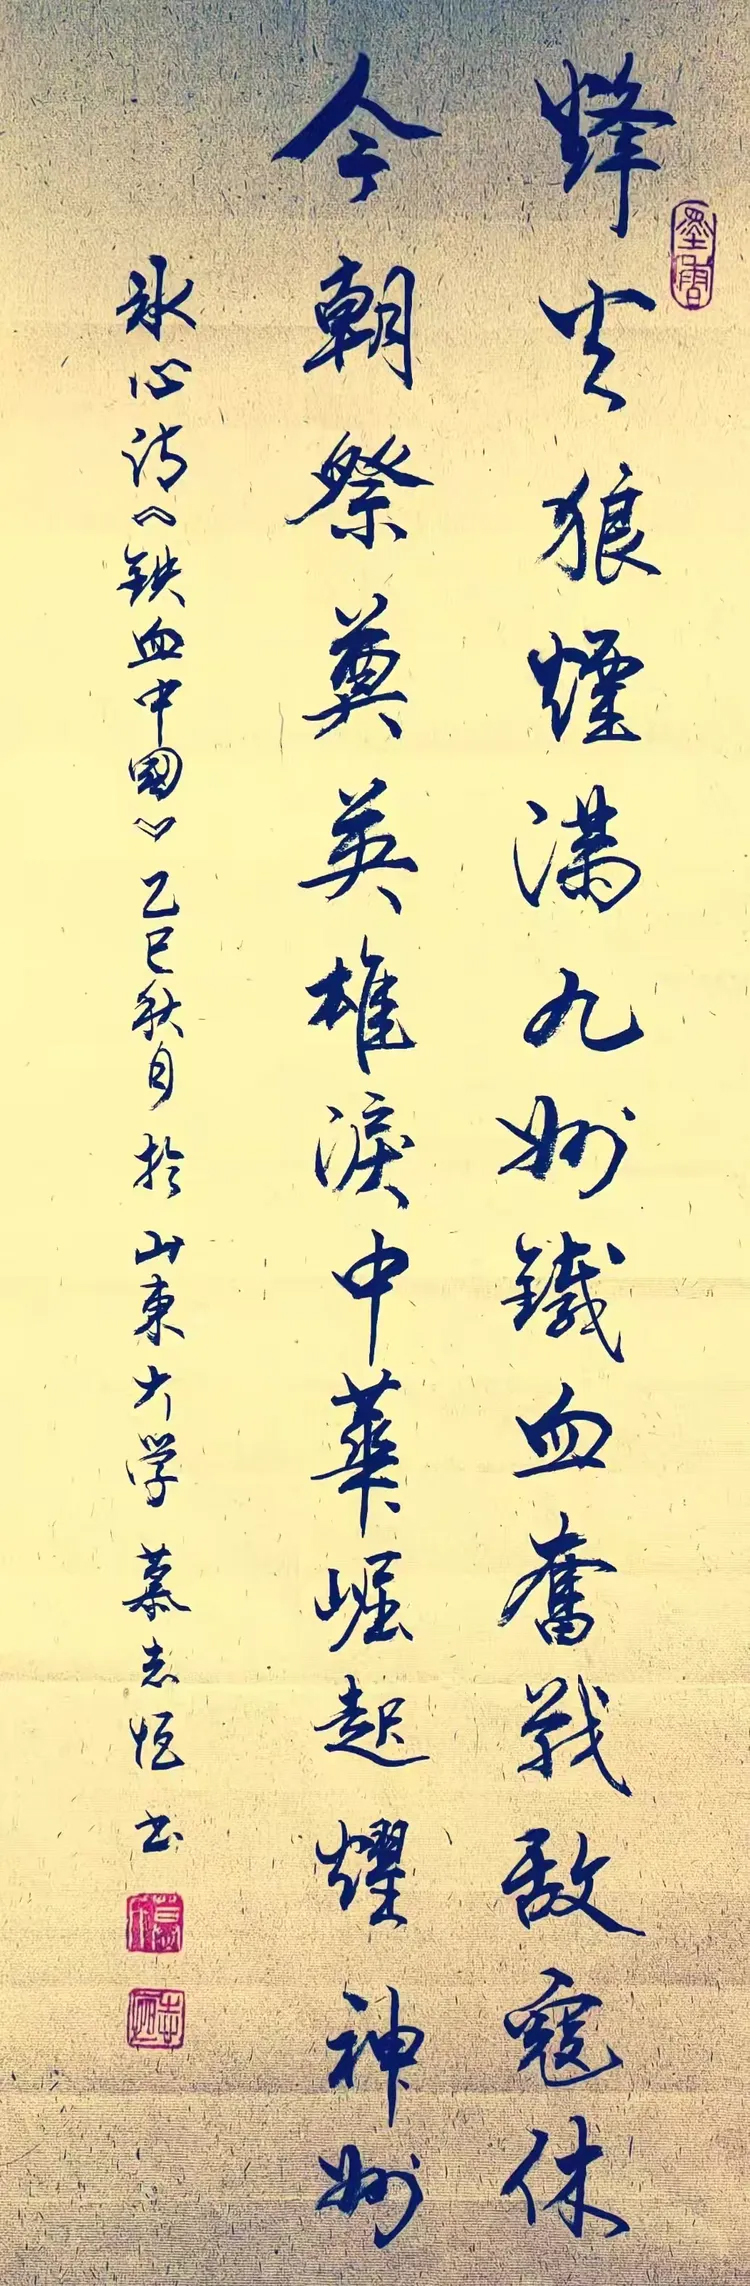 烽火狼煙滿九州鐵血奮戰敌寇休
今朝祭奠英雄淚中華崛起耀神州
冰心诗《鉄血中國》乙巳秋月於山東大学慕志恒书